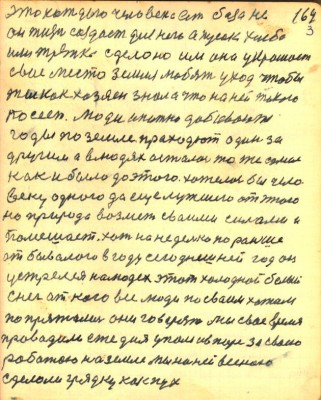 это каждого человека ест база не 164
он тизи создает для него а кусок хлеба 3
или тряпка сделано им она украшает
свое место земля любят уход чтобы
как хозяен знала что на ней такого
посеел. люди
годы по земле праходют один за
другим а в людях осталос то же самое
как и было до этого. хотелос бы чело
веку одного да еще лутшего от этого
но природа возмет сваими силами и
помешает. хот на неделко по ранше
от бывалого в году сегодншней год он
устрелея на людех этот холодной белый
снег от кого все люди по сваим хатам
попряталис они говорят мы свое время
праводили сме дня упали в за своею
работаю на земле мы на ней весною
сделали грядку как пух